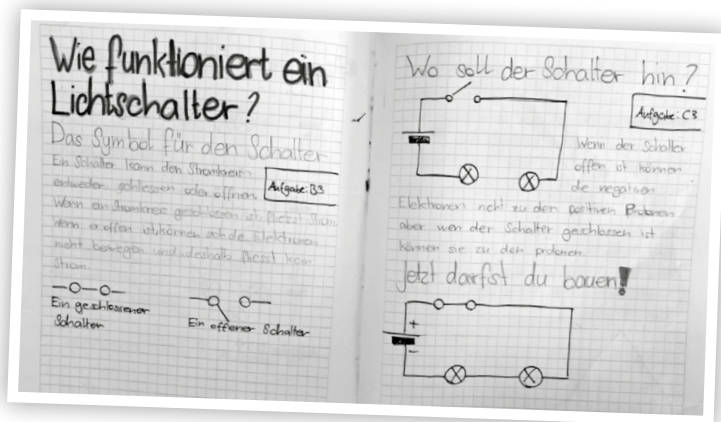 Wie funktioniert ein
Lichtschalter?
Das Symbol für den Schalter
Ein Schalter kann den Stromkreis
entweder schliessen oder öffnen.
Aufgabe: B3
Wenn ein Stromkreis geschlossen ist, fliesst Strom.
Wenn er offen ist, können sich die Elektronen
nicht bewegen und deshalb fliesst kein
Strom.
Ein geschlossener
Schalter
Ein offener Schalter
Wo soll der Schalter hin?
Aufgabe: C3
Wenn der Schalter
offen ist können
die negativen
Elektronen nicht zu den positiven
aber wen der Schalter geschlossen ist
können sie zu den protonen.
Jetzt darfst du bauen!
+
-